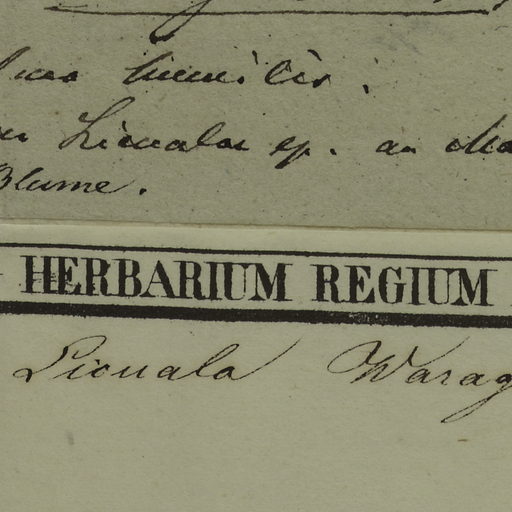 humilis.
Licuala sp. an
Blume.
HERBARIUM REGIUM
Licuala Warag